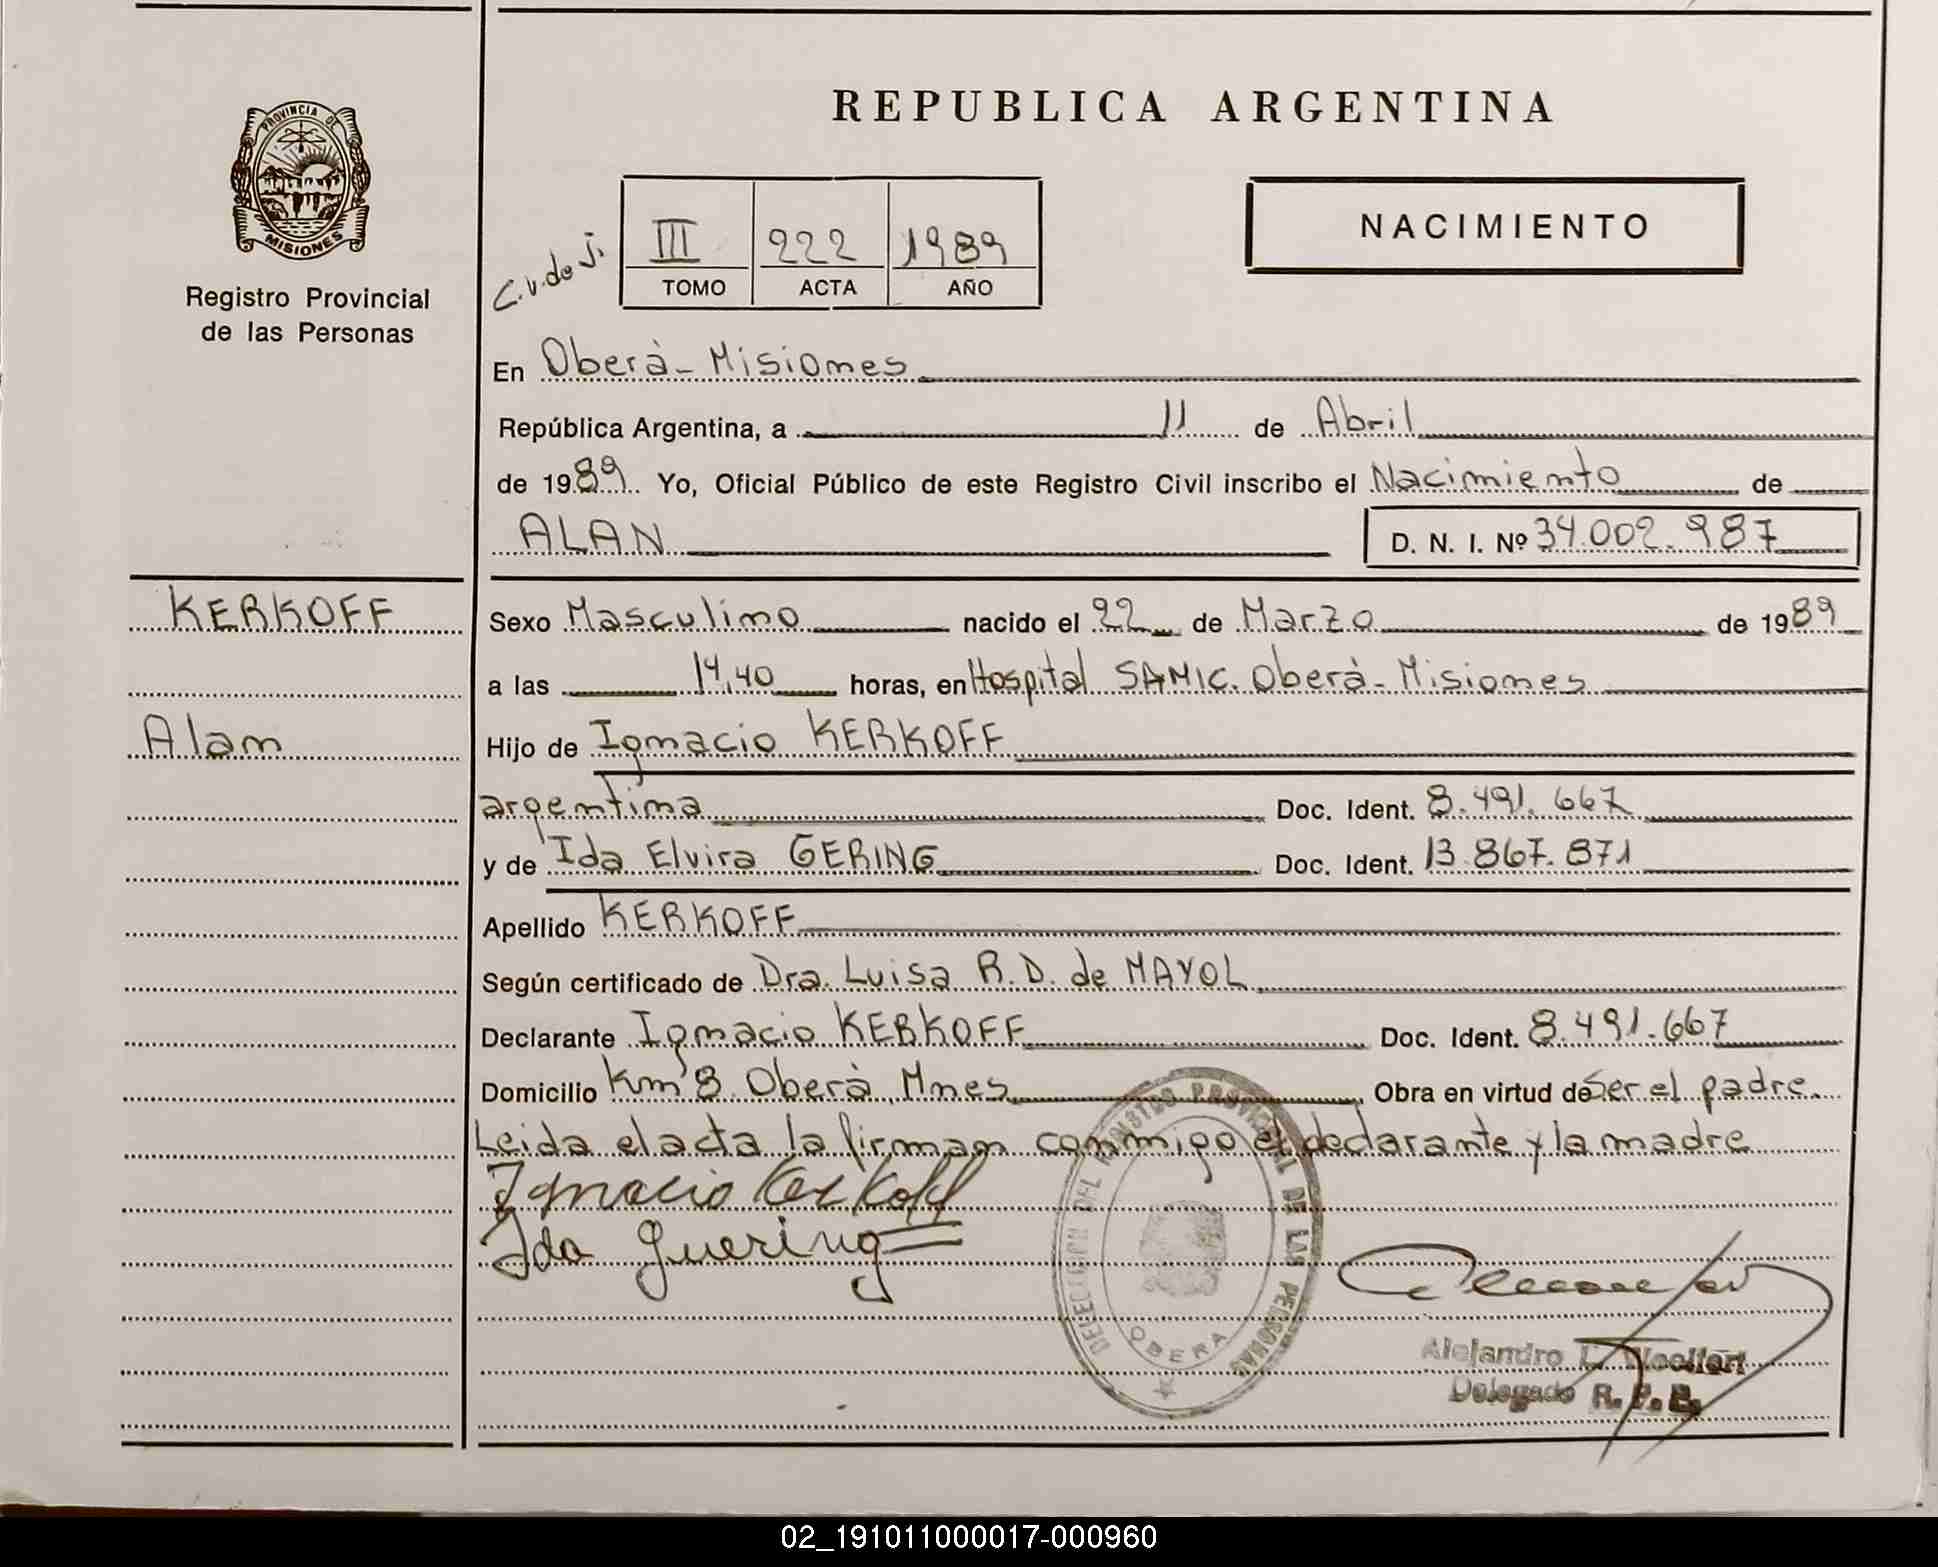 PROVINCIA DE
MISIONES
Registro Provincial
de las Personas
KERKOFF
Alan
REPUBLICA ARGENTINA
NACIMIENTO
C.V. de J.
III 222 1989
TOMO ACTA AÑO
En Oberà - Misiones
República Argentina, a 11 de Abril
de 1989 Yo, Oficial Público de este Registro Civil inscribo el Nacimiento de
ALAN D. N. I. Nº 34.002.987
Sexo Masculino nacido el 22 de Marzo de 1989
a las 14,40 horas, en Hospital SAMIC. Oberà - Misiones
Hijo de Ignacio KERKOFF
argentina Doc. Ident. 8.491.667
y de Ida Elvira GERING Doc. Ident. 13.867.871
Apellido KERKOFF
Según certificado de Dra. Luisa R.D. de MAYOL
Declarante Ignacio KERKOFF Doc. Ident. 8.491.667
Domicilio Km 8 Oberà, Mnes Obra en virtud de Ser el padre.
Leida el acta la firman conmigo el declarante y la madre
Ignacio Kerkoff
Ida Guering
DELEGACION DEL REGISTRO PROVINCIAL DE LAS PERSONAS
OBERA
Alejandro L. Woelfert
Delegado R. P. P.
02_191011000017-000960